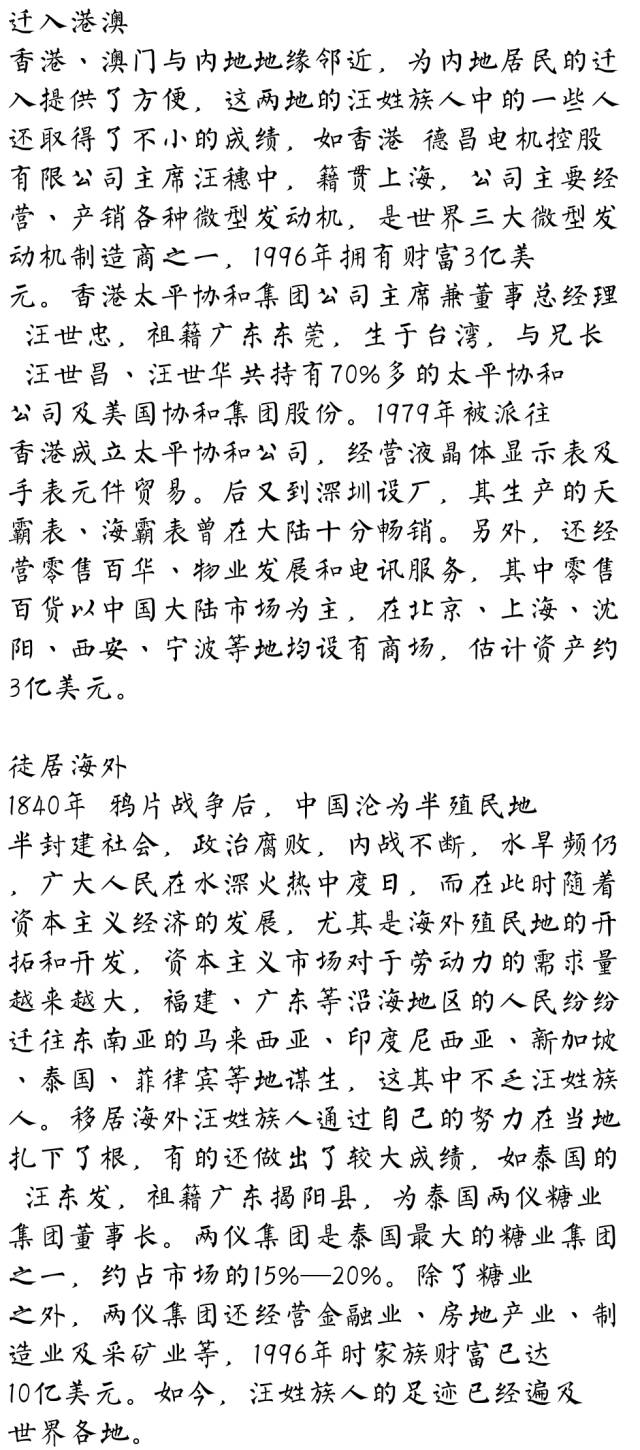 迁入港澳
香港、澳门与内地地缘邻近，为内地居民的迁
入提供了方便，这两地的汪姓族人中的一些人
还取得了不小的成绩，如香港 德昌电机控股
有限公司主席汪穗中，籍贯上海，公司主要经
营、产销各种微型发动机，是世界三大微型发
动机制造商之一，1996年拥有财富3亿美
元。香港太平协和集团公司主席兼董事总经理
汪世忠，祖籍广东东莞，生于台湾，与兄长
汪世昌、汪世华共持有70%多的太平协和
公司及美国协和集团股份。1979年被派往
香港成立太平协和公司，经营液晶体显示表及
手表元件贸易。后又到深圳设厂，其生产的天
霸表、海霸表曾在大陆十分畅销。另外，还经
营零售百华、物业发展和电讯服务，其中零售
百货以中国大陆市场为主，在北京、上海、沈
阳、西安、宁波等地均设有商场，估计资产约
3亿美元。
徒居海外
1840年 鸦片战争后，中国沦为半殖民地
半封建社会，政治腐败，内战不断，水旱频仍
，广大人民在水深火热中度日，而在此时随着
资本主义经济的发展，尤其是海外殖民地的开
拓和开发，资本主义市场对于劳动力的需求量
越来越大，福建、广东等沿海地区的人民纷纷
迁往东南亚的马来西亚、印度尼西亚、新加坡
、泰国、菲律宾等地谋生，这其中不乏汪姓族
人。移居海外汪姓族人通过自己的努力在当地
扎下了根，有的还做出了较大成绩，如泰国的
汪东发，祖籍广东揭阳县，为泰国两仪糖业
集团董事长。两仪集团是泰国最大的糖业集团
之一，约占市场的15%—20%。除了糖业
之外，两仪集团还经营金融业、房地产业、制
造业及采矿业等，1996年时家族财富已达
10亿美元。如今，汪姓族人的足迹已经遍及
世界各地。